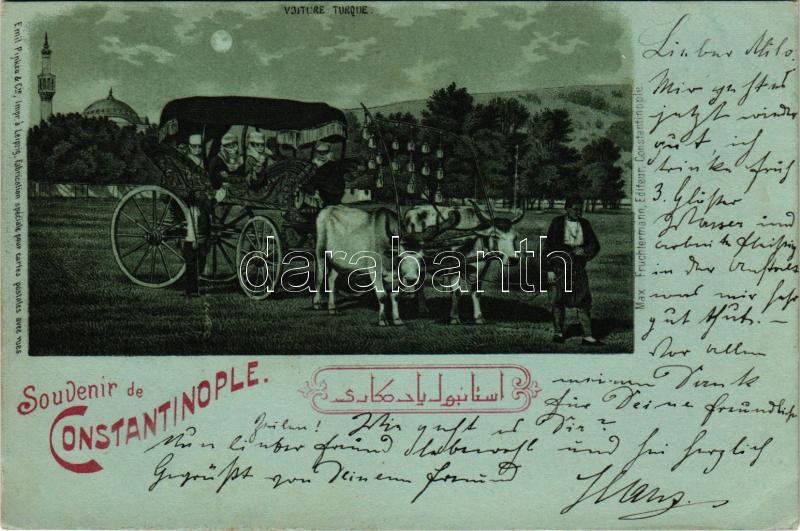 VOITURE TURQUE.
Emil Pinkau & Cie, Impr. à Leipzig, Fabrication spéciale pour cartes postales avec vues
Max. Fruchtermann, Editeur, Constantinople
darabanth.com
Souvenir de
CONSTANTINOPLE.
استانبول یادکاری
Lieber Milo.
Mir geht es
jetzt wieder
gut ich
trinke früh
3. Gläser
Wasser und
arbeite fleißig
in der
was mir sehr
gut thut. —
Vor allem
meinen Dank
für Deine freundliche
Zeilen! Wie geht es Dir?
Nun lieber Freund lebewohl und sei herzlich
Gegrüßt von Deinem Freund